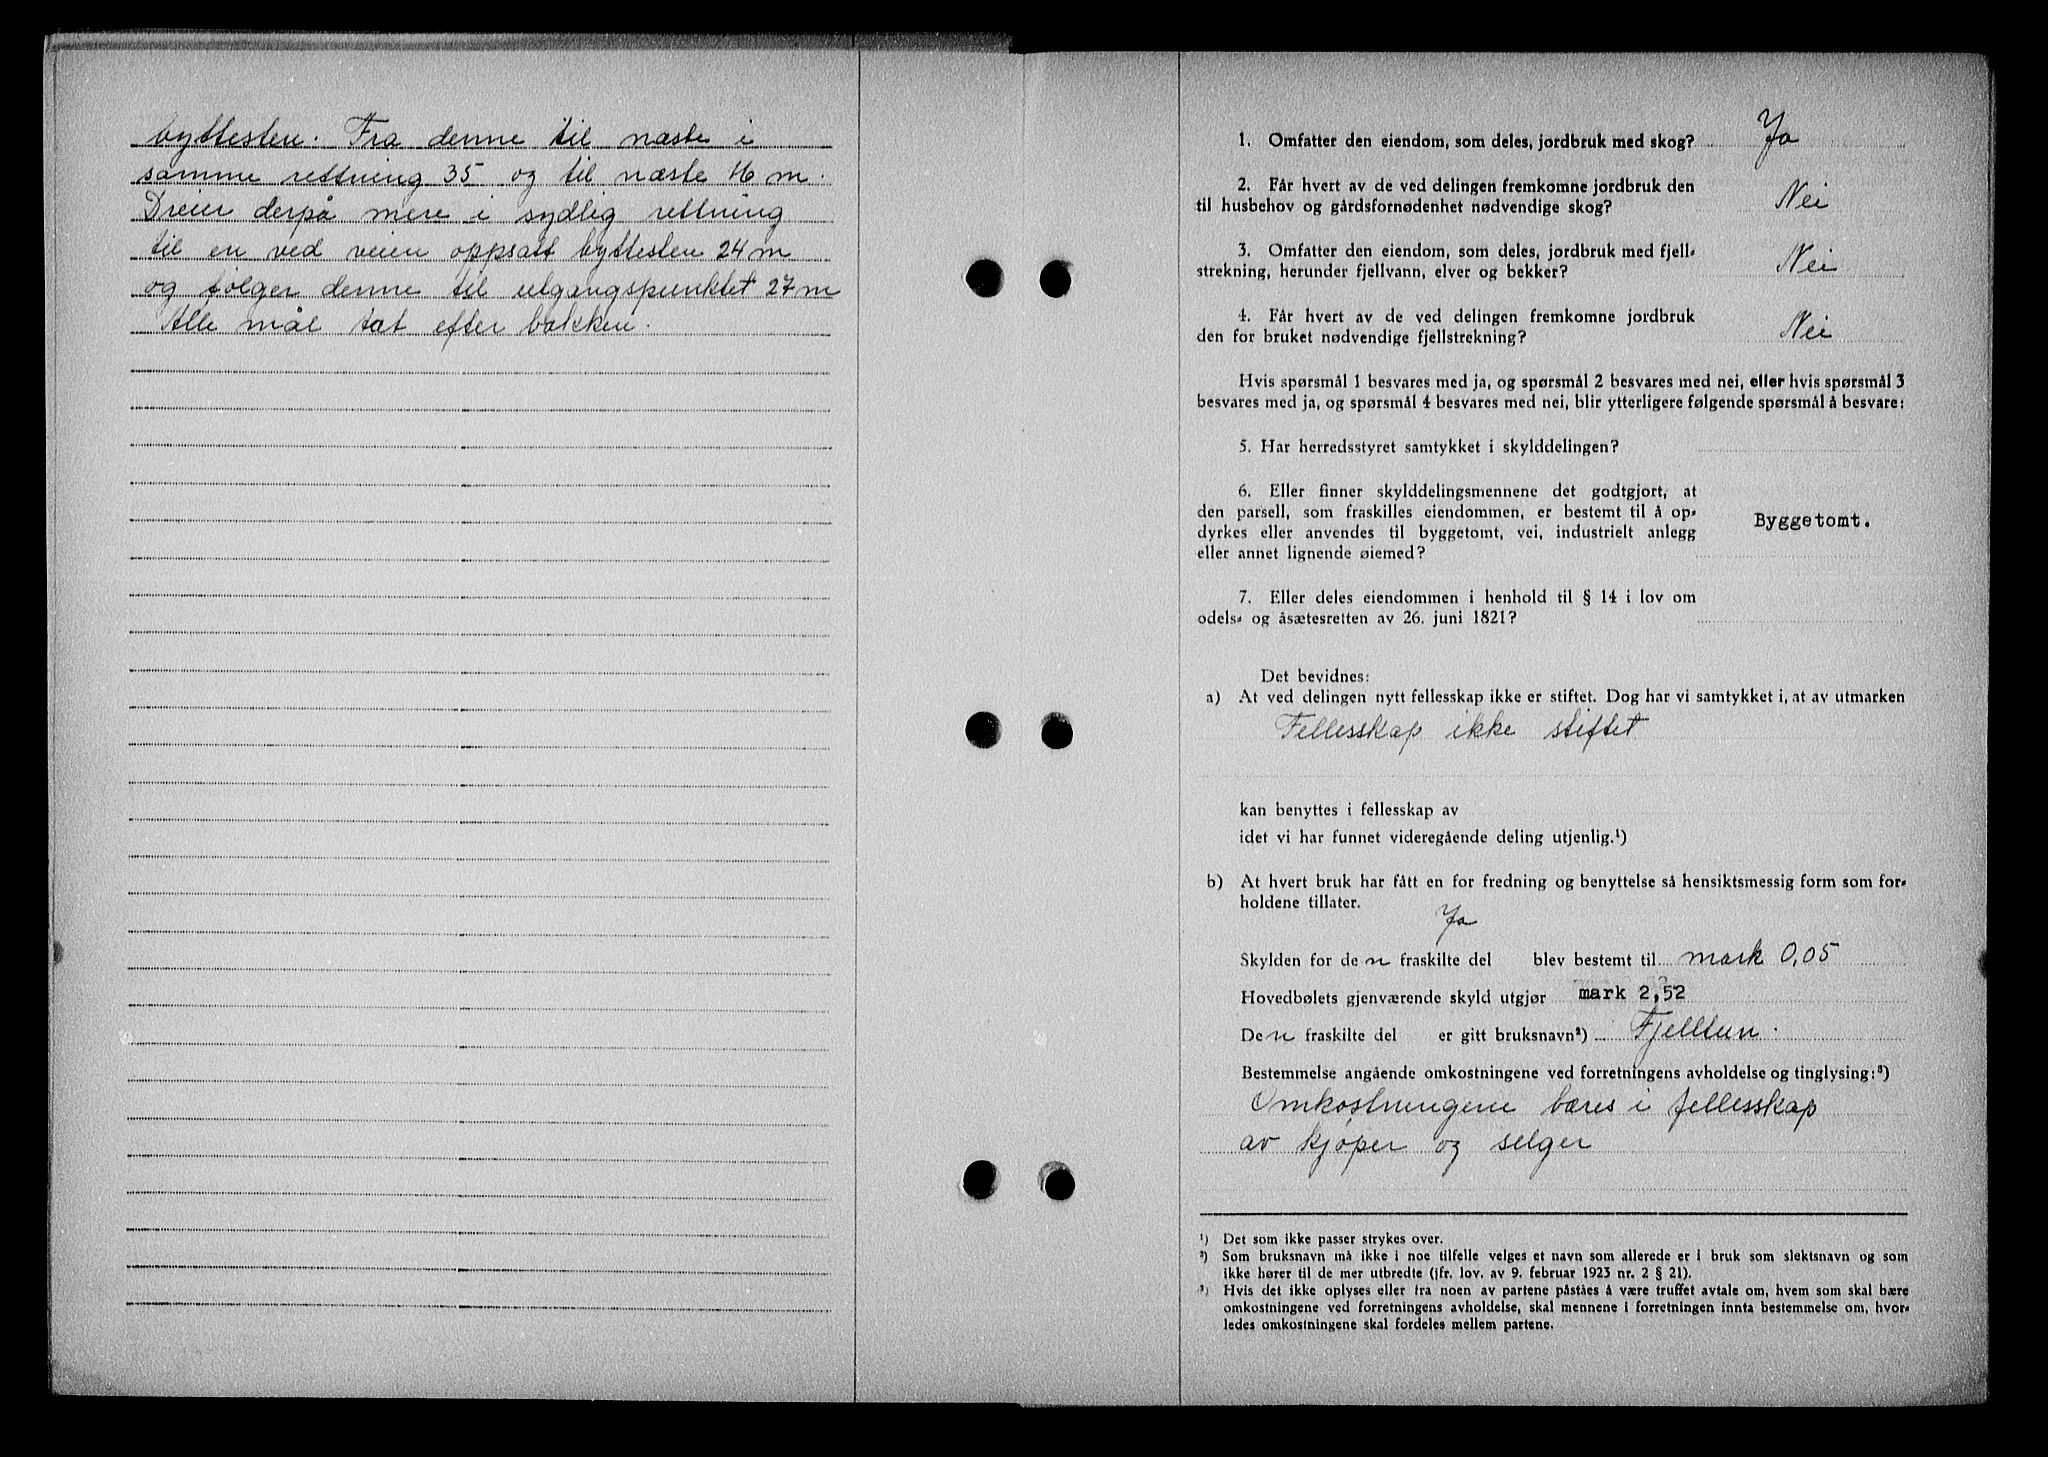 byttesten. Fra denne til næste i
samme rettning 35 og til næste 16 m.
Dreier derpå mere i sydlig rettning
til en ved veien oppsatt byttesten 24 m
og følger denne til utgangspunktet 27 m
Alle mål tat efter bakken.
1. Omfatter den eiendom, som deles, jordbruk med skog? Ja
2. Får hvert av de ved delingen fremkomne jordbruk den
til husbehov og gårdsfornødenhet nødvendige skog? Nei
3. Omfatter den eiendom, som deles, jordbruk med fjell-
strekning, herunder fjellvann, elver og bekker? Nei
4. Får hvert av de ved delingen fremkomne jordbruk
den for bruket nødvendige fjellstrekning? Nei
Hvis spørsmål 1 besvares med ja, og spørsmål 2 besvares med nei, eller hvis spørsmål 3
besvares med ja, og spørsmål 4 besvares med nei, blir ytterligere følgende spørsmål å besvare:
5. Har herredsstyret samtykket i skylddelingen?
6. Eller finner skylddelingsmennene det godtgjort, at
den parsell, som fraskilles eiendommen, er bestemt til å op-
dyrkes eller anvendes til byggetomt, vei, industrielt anlegg
eller annet lignende øiemed? Byggetomt.
7. Eller deles eiendommen i henhold til § 14 i lov om
odels- og åsætesretten av 26. juni 1821?
Det bevidnes:
a) At ved delingen nytt fellesskap ikke er stiftet. Dog har vi samtykket i, at av utmarken
Fellesskap ikke stiftet
kan benyttes i fellesskap av
idet vi har funnet videregående deling utjenlig.¹)
b) At hvert bruk har fått en for fredning og benyttelse så hensiktsmessig form som for-
holdene tillater.
Ja
Skylden for de n fraskilte del blev bestemt til mark 0,05
Hovedbølets gjenværende skyld utgjør mark 2,52
De n fraskilte del er gitt bruksnavn²) Fjelltun.
Bestemmelse angående omkostningene ved forretningens avholdelse og tinglysing:³)
Omkostningene bæres i fellesskap
av kjøper og selger
¹) Det som ikke passer strykes over.
²) Som bruksnavn må ikke i noe tilfelle velges et navn som allerede er i bruk som slektsnavn og som
ikke hører til de mer utbredte (jfr. lov. av 9. februar 1923 nr. 2 § 21).
³) Hvis det ikke oplyses eller fra noen av partene påståes å være truffet avtale om, hvem som skal bære
omkostningene ved forretningens avholdelse, skal mennene i forretningen innta bestemmelse om, hvor-
ledes omkostningene skal fordeles mellem partene.